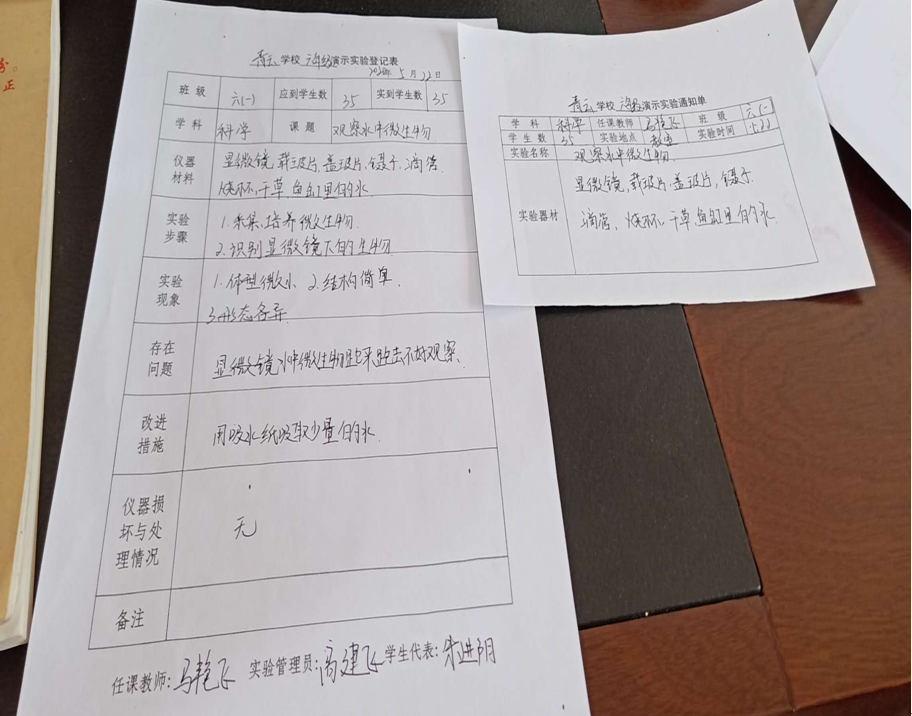 青云学校 六年级演示实验登记表
5月22日
班级 六(一) 应到学生数 35 实到学生数 35
学科 科学 课题 观察水中微生物
仪器材料 显微镜,载玻片,盖玻片,镊子,滴管
烧杯,干草 鱼缸里的水
实验步骤 1.采集,培养微生物.
2.识别显微镜下的生物
实验现象 1.体型微小、2.结构简单.
3.形态各异
存在问题 显微镜水中微生物跑来跑去不好观察.
改进措施 用吸水纸吸取少量的水.
仪器损坏与处理情况 无
备注
任课教师:马艳飞 实验管理员:高建飞 学生代表:朱进阴
青云学校 演示实验通知单
学科 科学 任课教师 马艳飞 班级 六(一)
学生数 35 实验地点 教室 实验时间 5.22
实验名称 观察水中微生物.
实验器材 显微镜,载玻片,盖玻片,镊子.
滴管、烧杯,干草 鱼缸里的水
正